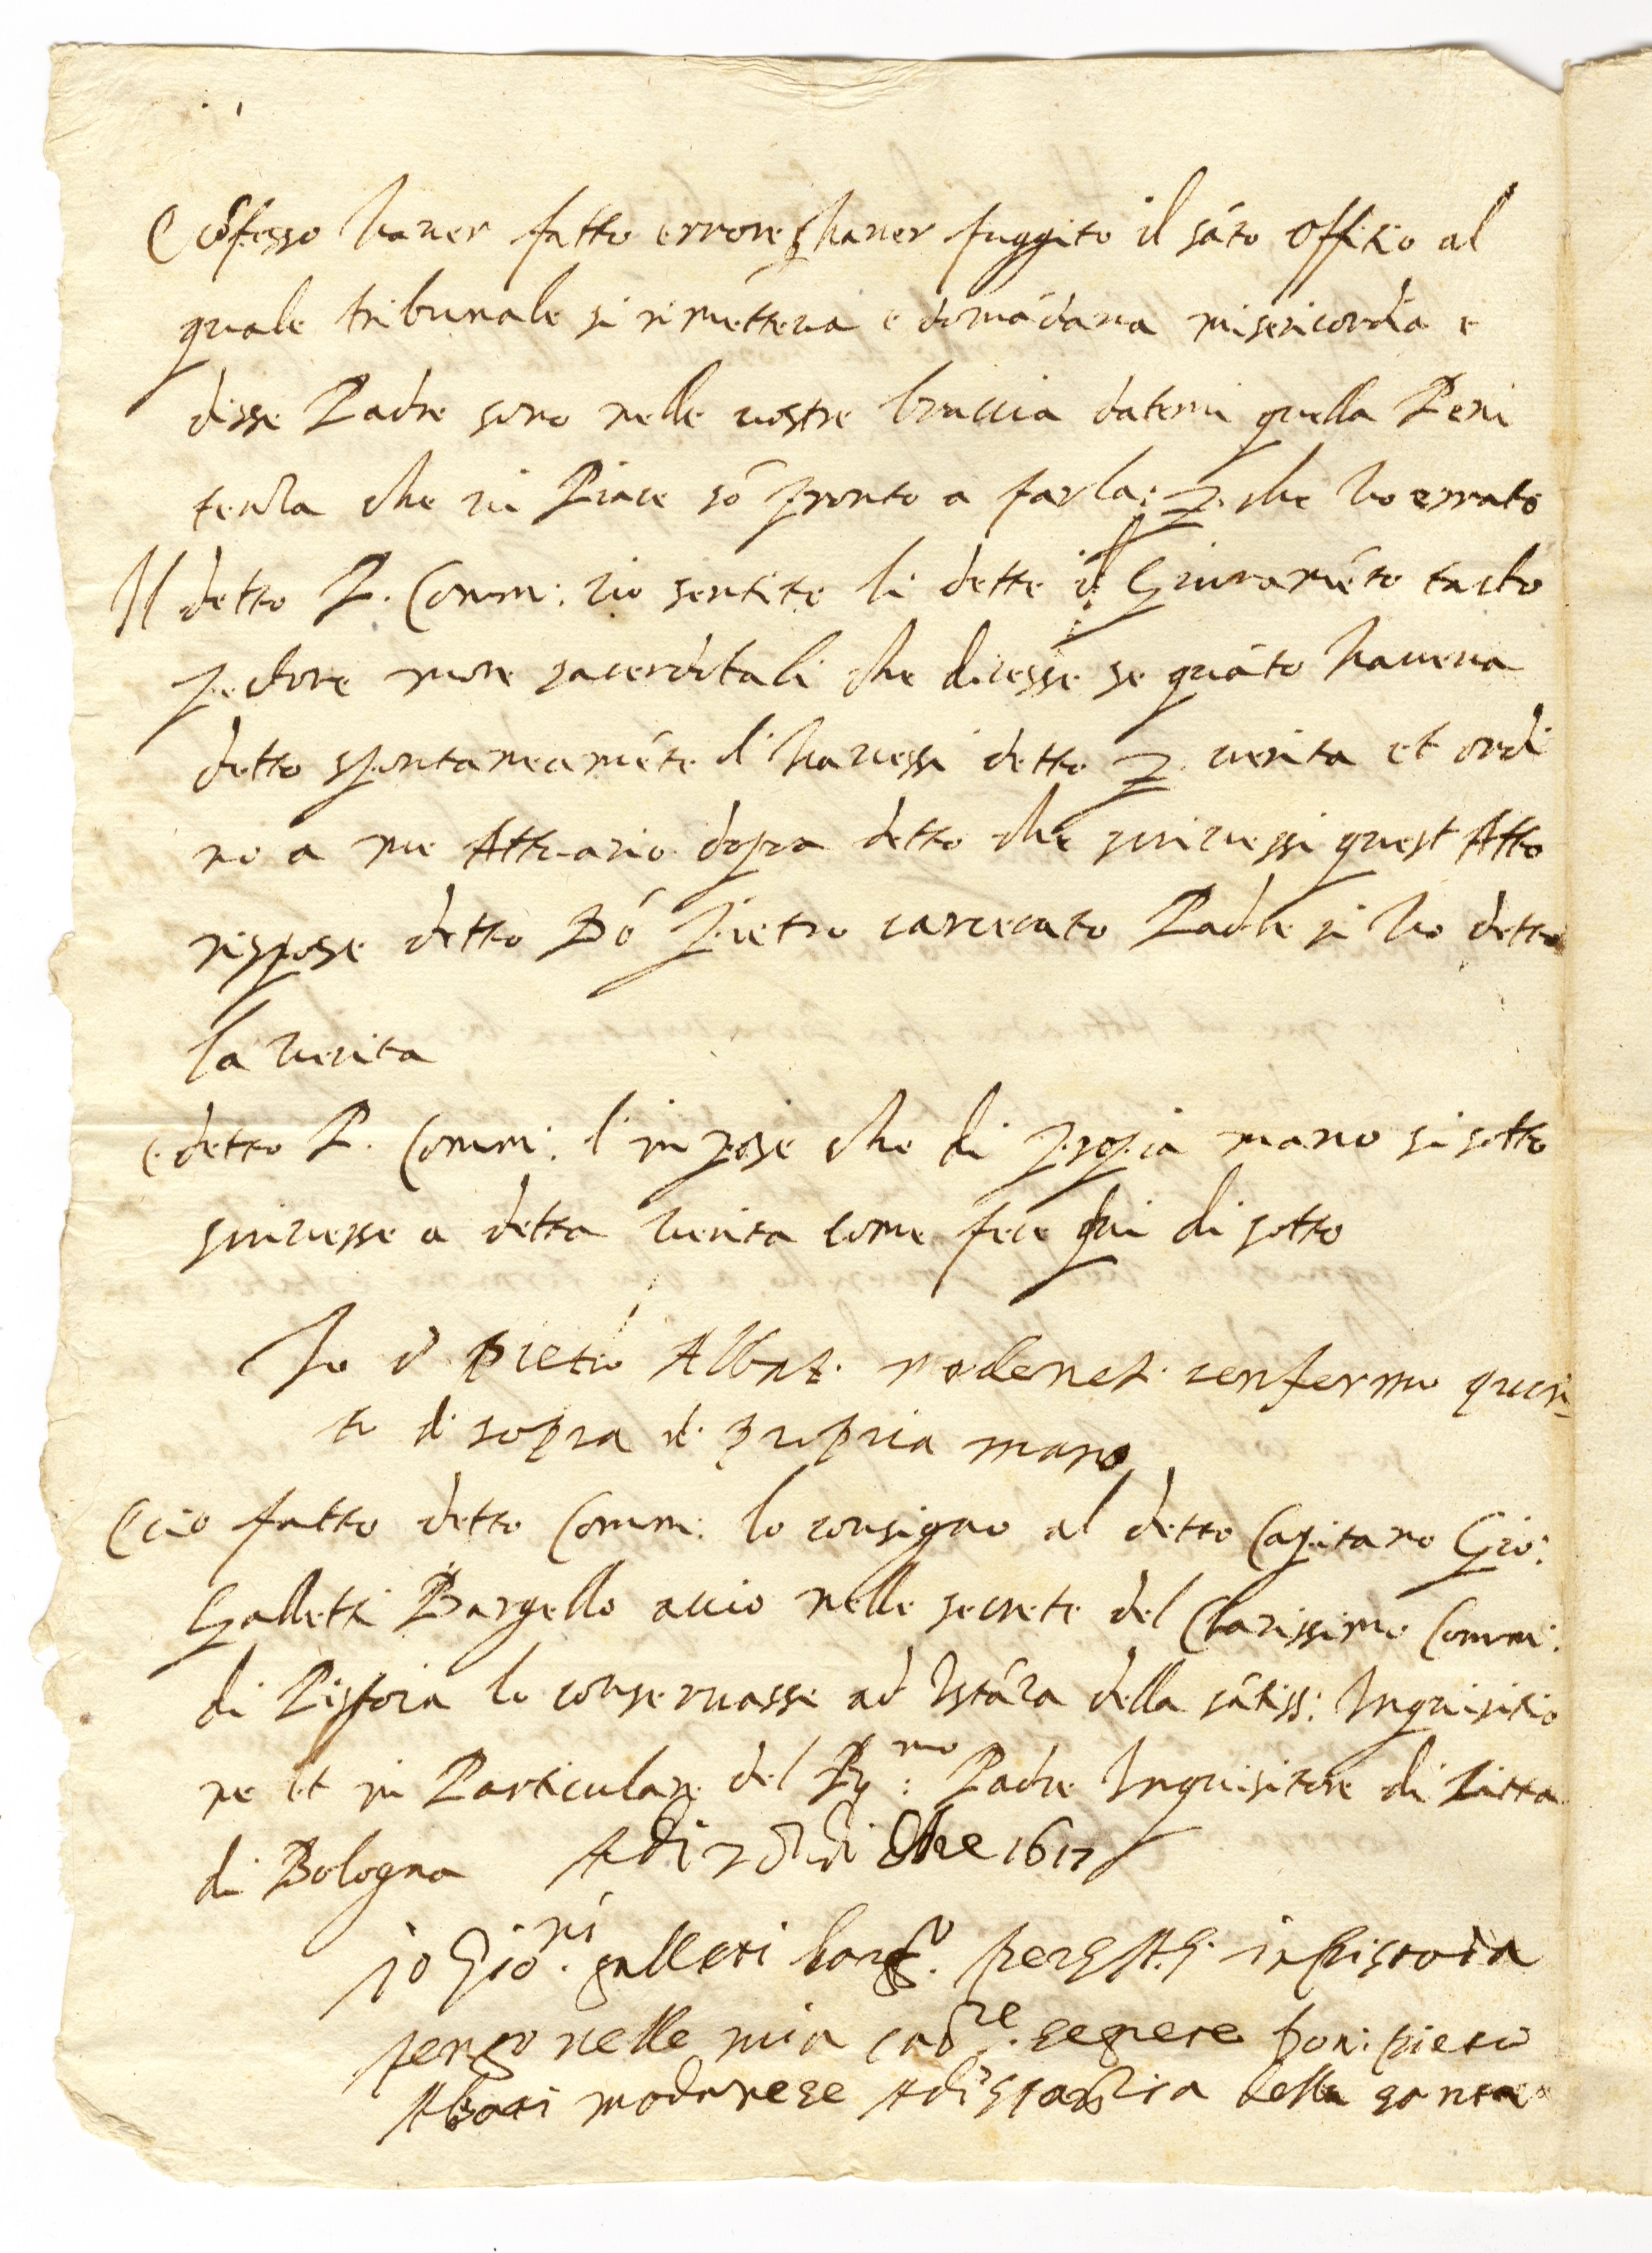 E cōfesso hauer fatto errore p hauer fuggito il sāto offitio al
quale tribunale si rimetteua e domādaua misericordia e
disse Padre sono nelle uostre braccia datemi quella Peni
tenza che ui Piace sō pronto a farla: p. che ho errato
Il detto P. Comm: ciò sentito li dette il Giuramēto tacto
pectore more sacerdotali che dicesse se quāto haueua
detto spontaneamēte l'hauessi detto p. uerita et ordi
no a me Attuario sopra detto che scriuessi quest Atto
rispose detto Dō Pietro carcerato Padre si ho detto
la uerita
e detto P. Comm: l'impose che di propia mano si sotto
scriuesse a detta uerita come fece qui di sotto
Io d. Pietro Albat. modenes. confermo quan-
to di sopra di propria mano
E ciò fatto detto Comm: lo consigno al detto Capitano Gio:
Galletti Bargello accio nelle secrete del Clarissimo Comm:
di Pistoia lo conseruasse ad Istāza della sātiss: Inquisitio
ne et in Particulare del Rmo: Padre Inquisitore di
di Bologna Adi di 1617
io Gioni. galletti barglo. per S.A.S. in pistoia
tengo nelle mia segrete don: pietro
Abati modanese ad istantia della santa